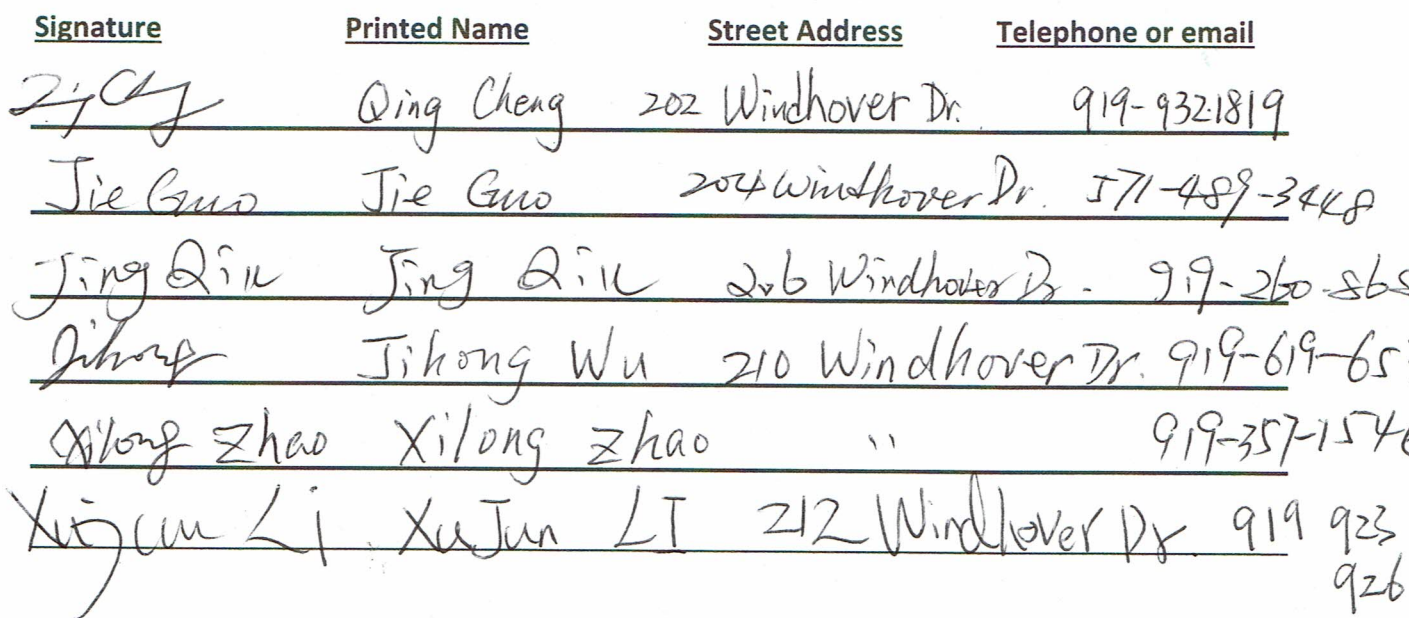 Signature Printed Name Street Address Telephone or email
Qing Cheng 202 Windhover Dr. 919-932-1819
Jie Guo Jie Guo 204 Windhover Dr. 571-489-3448
Jing Qiu Jing Qiu 206 Windhover Dr. 919-260-868
Jihong Jihong Wu 210 Windhover Dr. 919-619-65
Xilong Zhao Xilong Zhao " 919-357-1546
Xujun Li XuJun LI 212 Windhover Dr. 919 923
926